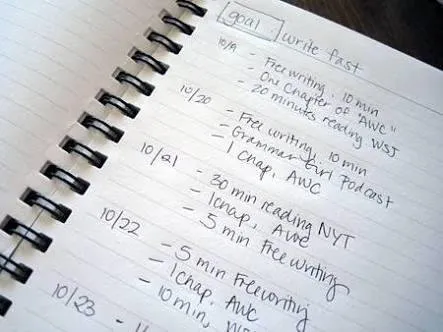 goal: write fast
10/9 - Freewriting. 10 min
- One Chapter of "AWC"
- 20 minutes reading WSJ
10/20 - Free writing, 10 min
- Grammar Girl Podcast
- 1 chap, AWC
10/21 - 30 min reading NYT
- 1 chap, AWC
- 5 min Freewriting
10/22 - 5 min Freewriting
- 1 Chap, AWC
- 10 min,
10/23 -